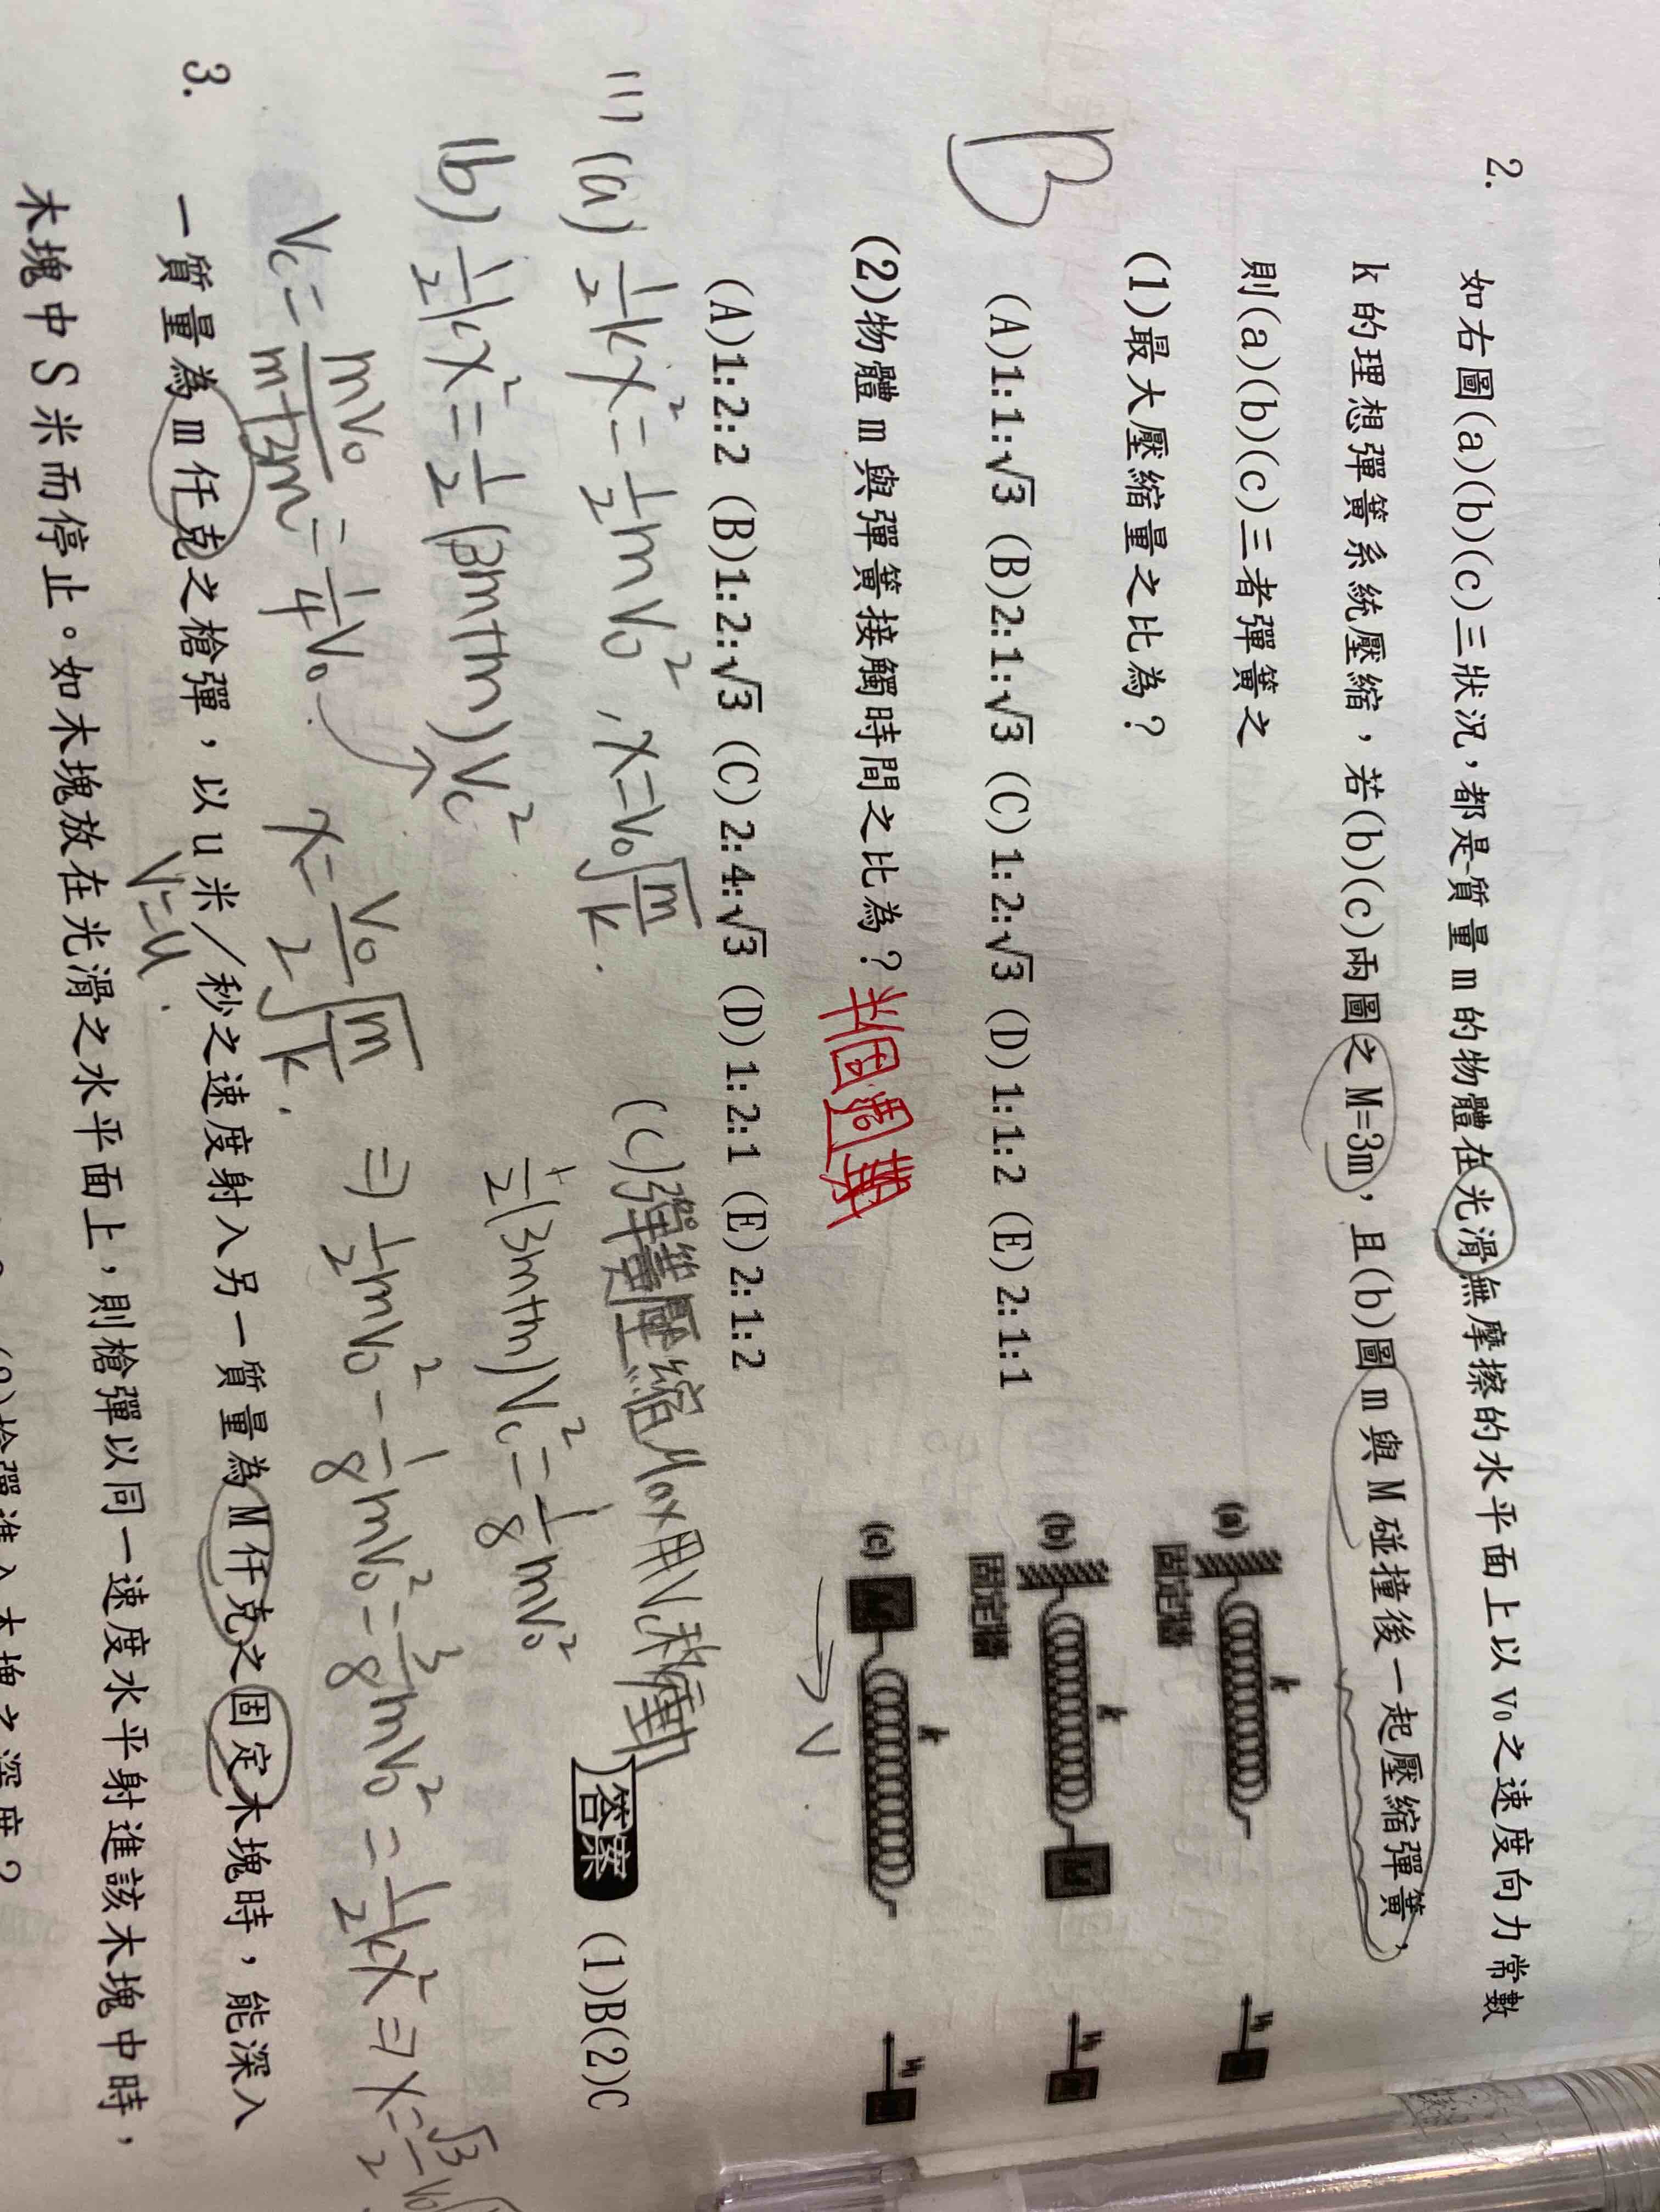 2.
如右圖(a)(b)(c)三狀況,都是質量m的物體在光滑無摩擦的水平面上以v₀之速度向力常數
k的理想彈簧系統壓縮,若(b)(c)兩圖之M=3m,且(b)圖m與M碰撞後一起壓縮彈簧,
則(a)(b)(c)三者彈簧之
(1)最大壓縮量之比為?
B
(A)1:1:√3 (B)2:1:√3 (C)1:2:√3 (D)1:1:2 (E)2:1:1
(2)物體m與彈簧接觸時間之比為?半個週期
(A)1:2:2 (B)1:2:√3 (C)2:4:√3 (D)1:2:1 (E)2:1:2
(a)
k
v₀
固定牆
(b)
k
M
v₀
固定牆
(c)
M
k
v₀
→V
(1) (a) ½kx²=½mV₀², x=V₀√(m/k).
(b) ½kx²=½(3m+m)Vc²
Vc=mV₀/(m+3m)=¼V₀. x=V₀/2√(m/k).
(c)彈簧壓縮Max用Vc移動
½(3m+m)Vc²=⅛mV₀²
⇒½mV₀²-⅛mV₀²=⅜mV₀²=½kx²⇒x=√3/2V₀
答案 (1)B(2)C
3.
一質量為m仟克之槍彈,以u米/秒之速度射入另一質量為M仟克之固定木塊時,能深入
V=u.
木塊中S米而停止。如木塊放在光滑之水平面上,則槍彈以同一速度水平射進該木塊中時,
槍彈進入木塊之深度?